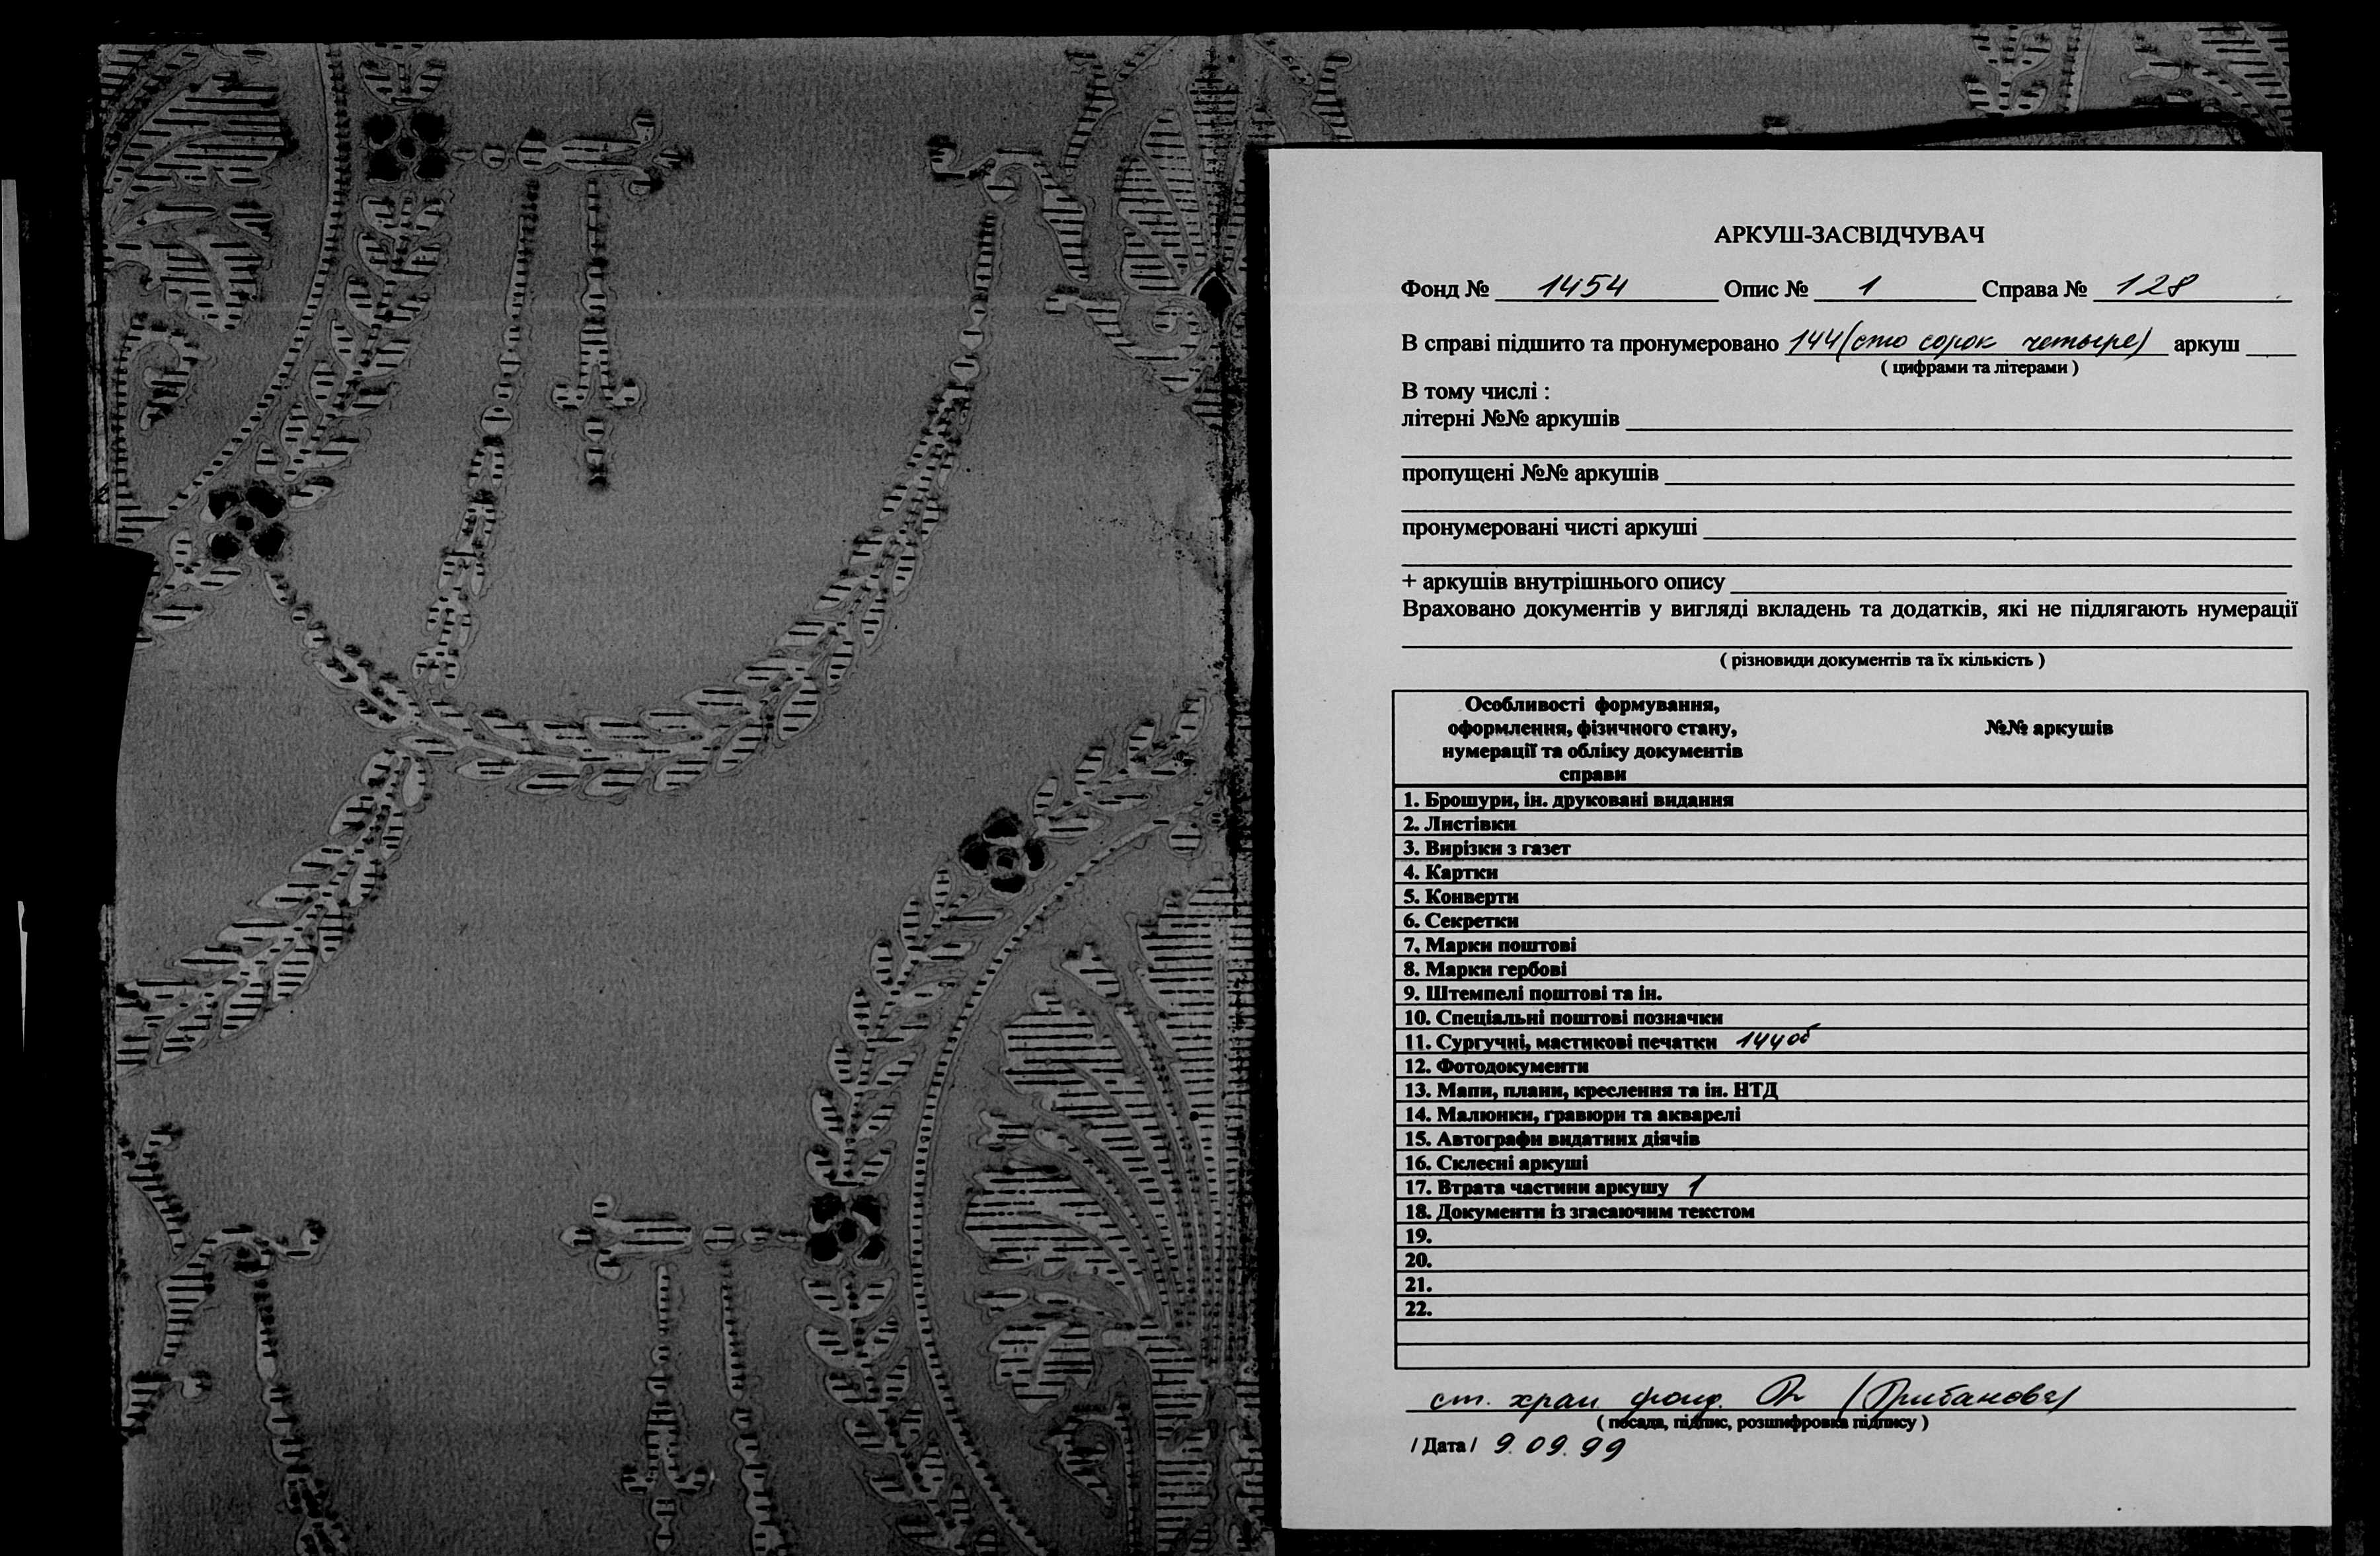 АРКУШ-ЗАСВІДЧУВАЧ
Фонд № 1454 Опис № 1 Справа № 128
В справі підшито та пронумеровано 144 (сто сорок четыре) аркуш
( цифрами та літерами )
В тому числі :
літерні №№ аркушів
пропущені №№ аркушів
пронумеровані чисті аркуші
+ аркушів внутрішнього опису
Враховано документів у вигляді вкладень та додатків, які не підлягають нумерації
( різновиди документів та їх кількість )
Особливості формування,
оформлення, фізичного стану,
нумерації та обліку документів
справи
№№ аркушів
1. Брошури, ін. друковані видання
2. Листівки
3. Вирізки з газет
4. Картки
5. Конверти
6. Секретки
7. Марки поштові
8. Марки гербові
9. Штемпелі поштові та ін.
10. Спеціальні поштові позначки
11. Сургучні, мастикові печатки 144об
12. Фотодокументи
13. Мапи, плани, креслення та ін. НТД
14. Малюнки, гравюри та акварелі
15. Автографи видатних діячів
16. Склеєні аркуші
17. Втрата частини аркушу 1
18. Документи із згасаючим текстом
19.
20.
21.
22.
ст. хран. фонд.
( посада, підпис, розшифровка підпису )
/ Дата / 9.09.99